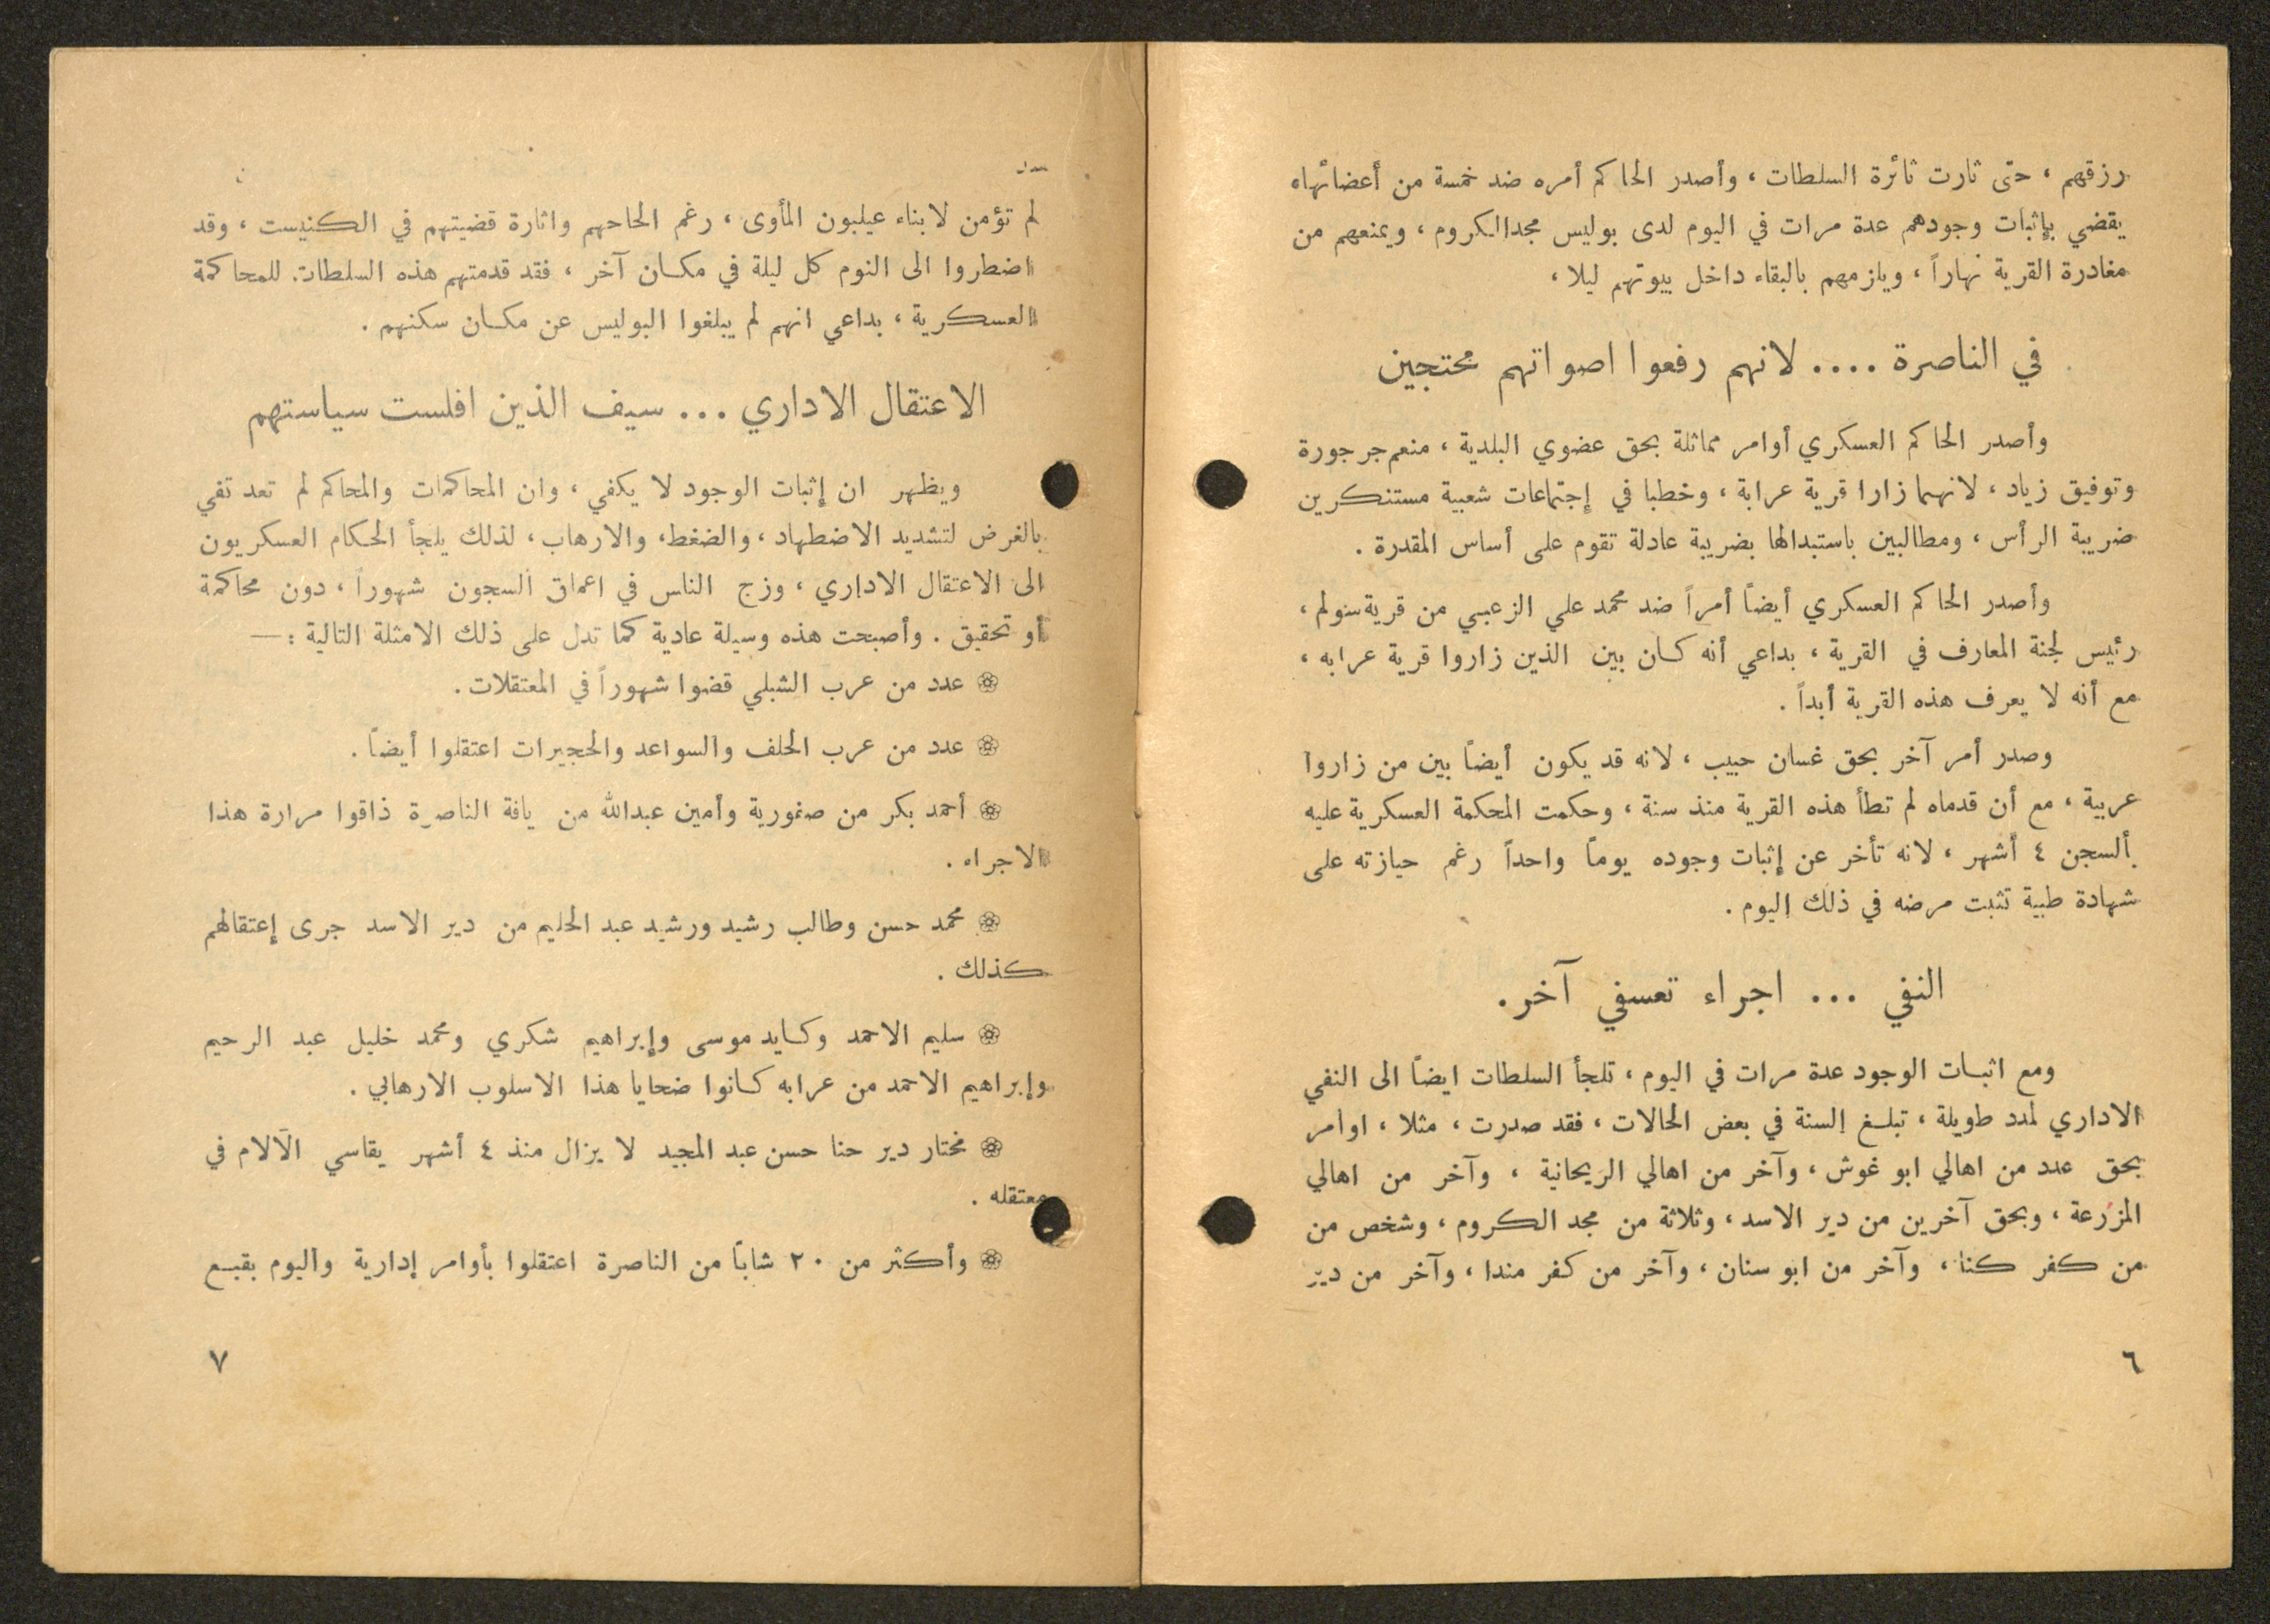 رزقهم ، حتى ثارت ثائرة السلطات ، وأصدر الحاكم أمره ضد خمسة من أعضائها،
يقضي بإثبات وجودهم عدة مرات في اليوم لدى بوليس مجدالكروم ، ويمنعهم من
مغادرة القرية نهاراً ، ويلزمهم بالبقاء داخل بيوتهم ليلا ،
في الناصرة .... لانهم رفعوا اصواتهم محتجين
وأصدر الحاكم العسكري أوامر مماثلة بحق عضوي البلدية ، منعم جرجورة
وتوفيق زياد ، لانهما زارا قرية عرابة ، وخطبا في إجتماعات شعبية مستنكرين
ضريبة الرأس ، ومطالبين باستبدالها بضريبة عادلة تقوم على أساس المقدرة .
وأصدر الحاكم العسكري أيضاً أمراً ضد محمد علي الزعبي من قرية سولم ،
رئيس لجنة المعارف في القرية ، بداعي أنه كان بين الذين زاروا قرية عرابه ،
مع أنه لا يعرف هذه القرية أبداً .
وصدر أمر آخر بحق غسان حبيب ، لانه قد يكون أيضاً بين من زاروا
عربية ، مع أن قدماه لم تطأ هذه القرية منذ سنة ، وحكمت المحكمة العسكرية عليه
بألسجن ٤ أشهر ، لانه تأخر عن إثبات وجوده يوماً واحداً رغم حيازته على
شهادة طبية تثبت مرضه في ذلك اليوم .
النفي ... اجراء تعسفي آخر .
ومع اثبات الوجود عدة مرات في اليوم ، تلجأ السلطات ايضاً الى النفي
الاداري لمدد طويلة ، تبلغ السنة في بعض الحالات ، فقد صدرت ، مثلا ، اوامر
بحق عدد من اهالي ابو غوش ، وآخر من اهالي الريحانية ، وآخر من اهالي
المزرعة ، وبحق آخرين من دير الاسد ، وثلاثة من مجد الكروم ، وشخص من
من كفر كنا ، وآخر من ابو سنان ، وآخر من كفر مندا ، وآخر من دير
٦
لم تؤمن لابناء عيلبون المأوى ، رغم الحاحهم واثارة قضيتهم في الكنيست ، وقد
اضطروا الى النوم كل ليلة في مكان آخر ، فقد قدمتهم هذه السلطات للمحاكمة
العسكرية ، بداعي انهم لم يبلغوا البوليس عن مكان سكنهم .
الاعتقال الاداري ... سيف الذين افلست سياستهم
ويظهر ان إثبات الوجود لا يكفي ، وان المحاكمات والمحاكم لم تعد تفي
بالغرض لتشديد الاضطهاد ، والضغط، والارهاب ، لذلك يلجأ الحكام العسكريون
الى الاعتقال الاداري ، وزج الناس في اعماق السجون شهوراً ، دون محاكمة
أو تحقيق . وأصبحت هذه وسيلة عادية كما تدل على ذلك الامثلة التالية : —
❁ عدد من عرب الشبلي قضوا شهوراً في المعتقلات .
❁ عدد من عرب الحلف والسواعد والحجيرات اعتقلوا أيضاً .
❁ أحمد بكر من صفورية وأمين عبدالله من يافة الناصرة ذاقوا مرارة هذا
الاجراء .
❁ محمد حسن وطالب رشيد ورشيد عبد الحليم من دير الاسد جرى إعتقالهم
كذلك .
❁ سليم الاحمد وكايد موسى وإبراهيم شكري ومحمد خليل عبد الرحيم
وإبراهيم الاحمد من عرابه كانوا ضحايا هذا الاسلوب الارهابي .
❁ مختار دير حنا حسن عبد المجيد لا يزال منذ ٤ أشهر يقاسي الآلام في
معتقله .
❁ وأكثر من ٢٠ شاباً من الناصرة اعتقلوا بأوامر إدارية واليوم بقبع
٧